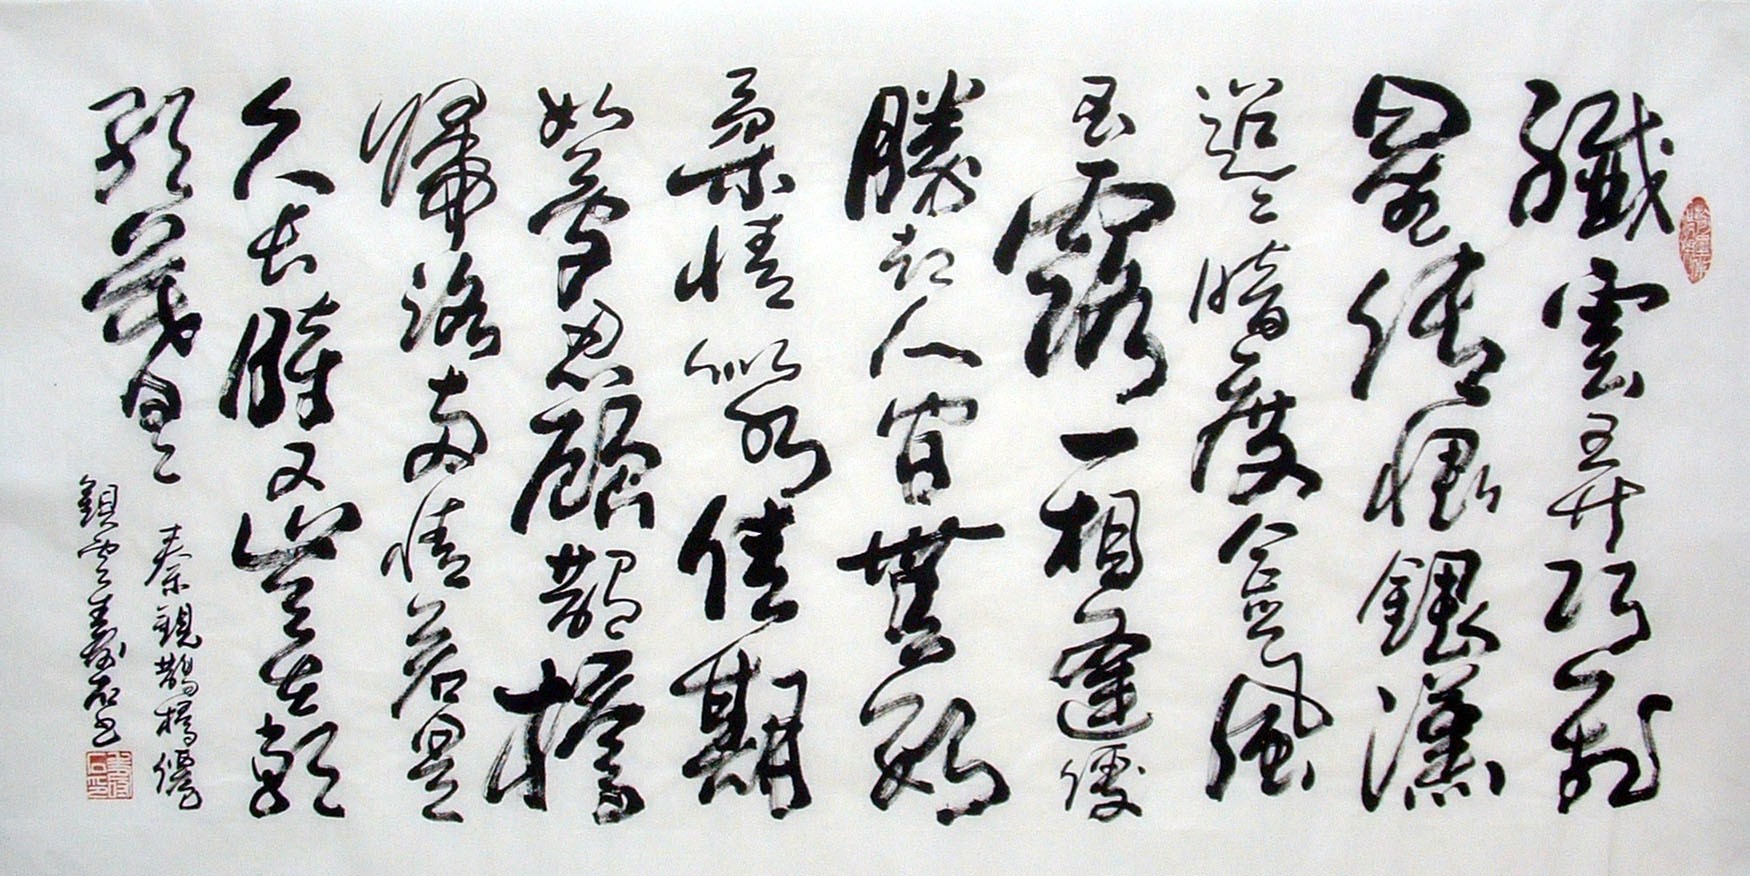 纖雲弄巧飛
星傳恨銀漢
迢々暗度金風
玉露一相逢便
勝却人間無數
柔情似水佳期
如夢忍顧鵲橋
歸路兩情若是
久長時又豈在朝
朝暮暮
秦觀鵲橋仙
雲書